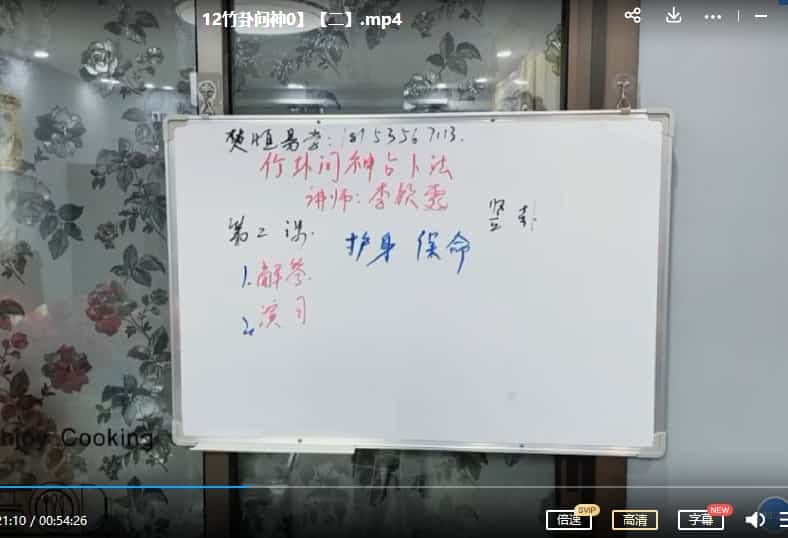 12竹卦问神0】【二】.mp4
樊恒易学：18753567113.
竹卦问神占卜法
讲师：李欣霏
竖卦
第二课.
护身 保命
1.解答
2.演习
njoy Cooking
21:10 / 00:54:26
倍速
SVIP
高清
字幕
NEW